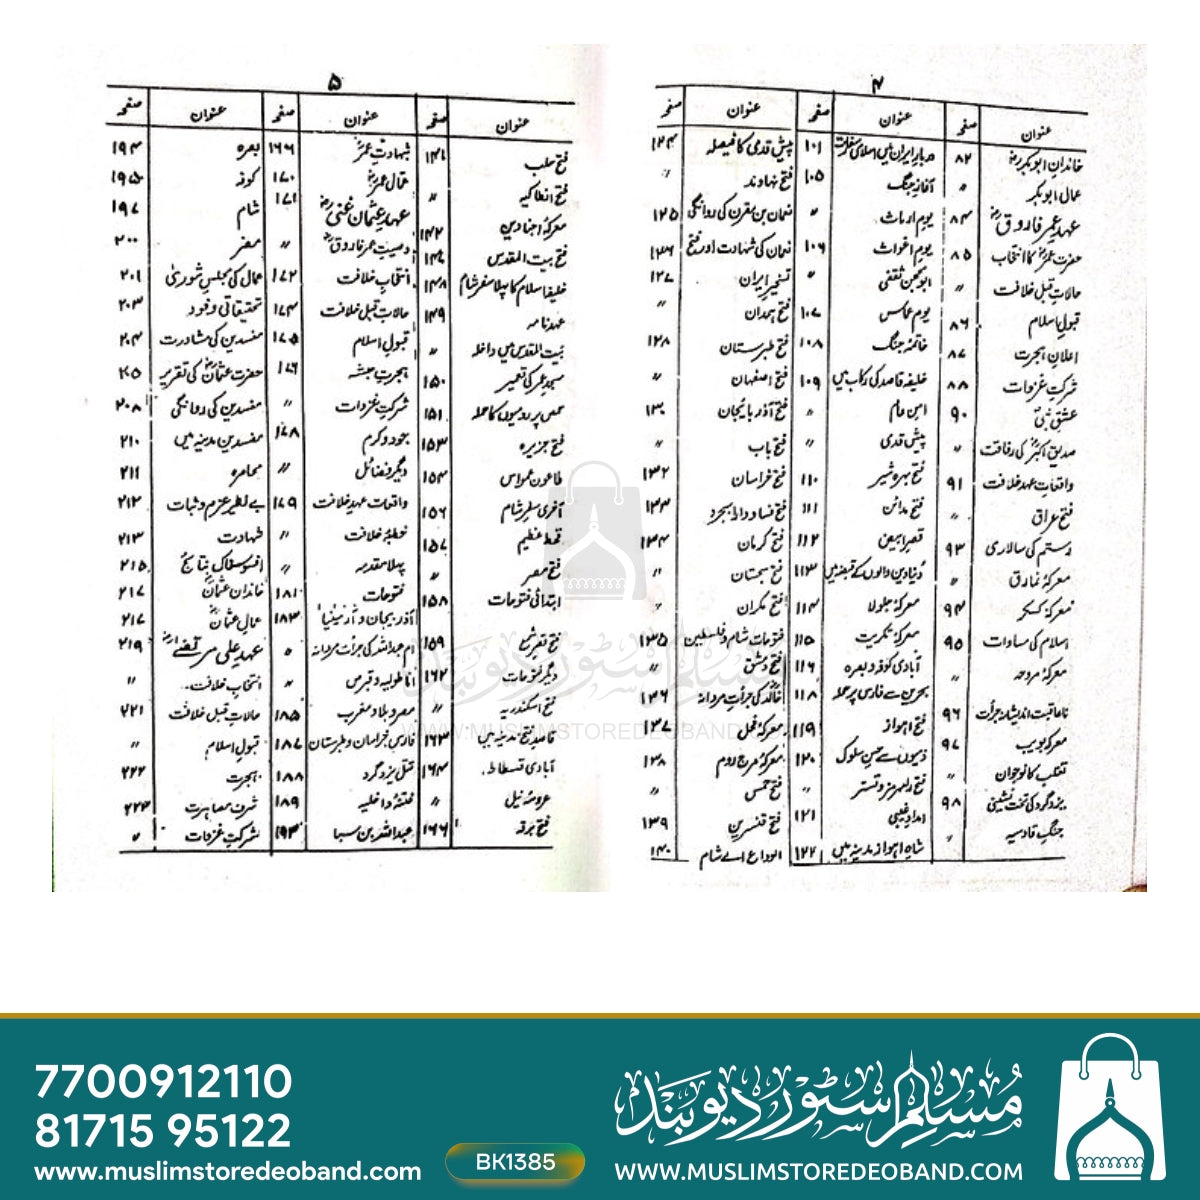 ۴
عنوان صفحہ عنوان صفحہ عنوان صفحہ
خاندانِ ابوبکرؓ ۸۲
عمال ابوبکر 〃
عہدِ عمر فاروقؓ ۸۴
حضرت عمرؓ کا انتخاب ۸۵
حالات قبل خلافت 〃
قبولِ اسلام ۸۶
اعلانِ ہجرت ۸۷
شرکتِ غزوات ۸۸
عشقِ نبیؐ ۹۰
صدیق اکبرؓ کی رفاقت 〃
واقعات عہد خلافت ۹۱
فتح عراق 〃
رستم کی سالاری ۹۳
معرکۂ نمارق 〃
معرکۂ کسکر ۹۴
اسلام کی مساوات ۹۵
معرکۂ مروحہ 〃
ناعاقبت اندیشانہ جرأت ۹۶
معرکہ بویب ۹۷
تغلب کا نوجوان 〃
یزدگرد کی تخت نشینی ۹۸
جنگِ قادسیہ 〃
دربارِ ایران میں اسلامی سفارت ۱۰۱
آغازِ جنگ ۱۰۵
یومِ ارماث 〃
یومِ اغواث ۱۰۶
ابومحجن ثقفی 〃
یومِ عماس ۱۰۷
خاتمۂ جنگ ۱۰۸
خلیفہ قاصد کی رکاب میں ۱۰۹
امن عام 〃
پیش قدمی 〃
فتح بہرہ شیر ۱۱۰
فتح مدائن ۱۱۱
قصرِ ابیض ۱۱۲
دنیا دین والوں کے قبضہ میں ۱۱۳
معرکۂ جلولا ۱۱۴
معرکۂ تکریت ۱۱۵
آبادی کوفہ و بصرہ ۱۱۶
بحرین سے فارس پر حملہ ۱۱۸
فتح اہواز ۱۱۹
ذمیوں سے حسنِ سلوک ۱۲۰
فتح رامہرمز و تستر 〃
امدادِ غیبی ۱۲۱
شاہِ اہواز مدینہ میں ۱۲۲
پیش قدمی کا فیصلہ ۱۲۴
فتح نہاوند 〃
نعمان بن مقرن کی روانگی ۱۲۵
نعمان کی شہادت اور فتح ۱۲۶
تسخیرِ ایران ۱۲۷
فتح ہمدان 〃
فتح طبرستان ۱۲۸
فتح اصفہان 〃
فتح آذربائیجان ۱۳۰
فتح باب 〃
فتح خراسان ۱۳۲
فتح فسا و دارابجرد ۱۳۳
فتح کرمان ۱۳۴
فتح سجستان 〃
فتح مکران 〃
فتوحاتِ شام و فلسطین ۱۳۵
فتح دمشق 〃
خالدؓ کی جرأتِ مردانہ ۱۳۶
معرکۂ فحل ۱۳۷
معرکۂ مرج روم ۱۳۸
فتح حمص 〃
فتح قنسرین ۱۳۹
الوداع اے شام ۱۴۰
۵
عنوان صفحہ عنوان صفحہ عنوان صفحہ
فتح حلب ۱۴۱
فتح انطاکیہ 〃
معرکۂ اجنادین ۱۴۲
فتح بیت المقدس
خلیفۂ اسلام کا پہلا سفرِ شام ۱۴۸
عہد نامہ ۱۴۹
بیت المقدس میں داخلہ 〃
مسجدِ عمر کی تعمیر ۱۵۰
حمص پر رومیوں کا حملہ ۱۵۱
فتح جزیرہ ۱۵۳
طاعونِ عمواس ۱۵۴
آخری سفرِ شام ۱۵۶
قحطِ عظیم ۱۵۷
فتح مصر 〃
ابتدائی فتوحات ۱۵۸
فتح قصرِ شمع ۱۵۹
دیگر فتوحات ۱۶۲
فتح اسکندریہ 〃
قاصدِ فتح مدینہ میں ۱۶۳
آبادی فسطاط ۱۶۴
عروسۂ نیل 〃
فتح برقہ ۱۶۶
شہادتِ عمرؓ ۱۶۶
عمالِ عمرؓ ۱۷۰
عہدِ عثمان غنیؓ ۱۷۱
وصیتِ عمر فاروقؓ 〃
انتخابِ خلافت ۱۷۲
حالات قبل خلافت ۱۷۴
قبولِ اسلام ۱۷۵
ہجرتِ حبشہ ۱۷۶
شرکتِ غزوات 〃
جود و کرم ۱۷۸
دیگر فضائل 〃
واقعات عہد خلافت ۱۷۹
خطبۂ خلافت 〃
پہلا مقدمہ 〃
فتوحات ۱۸۱
آذربیجان و آرمینیا ۱۸۳
ام عبداللہ کی جرأت مردانہ
اناطولیہ و قبرص 〃
مصر و بلاد مغرب ۱۸۵
فارس، خراسان و طبرستان ۱۸۷
قتل یزدگرد ۱۸۸
فتنۂ داخلیہ ۱۸۹
عبداللہ بن سبا ۱۹۳
بصرہ ۱۹۴
کوفہ ۱۹۵
شام ۱۹۷
مصر ۲۰۰
عمال کی مجلسِ شوریٰ ۲۰۱
تحقیقاتی وفود ۲۰۳
مفسدین کی مشاورت ۲۰۴
حضرت عثمانؓ کی تقریر ۲۰۵
مفسدین کی روانگی ۲۰۸
مفسدین مدینہ میں ۲۱۰
محاصرہ ۲۱۱
بے نظیر عزم و ثبات ۲۱۲
شہادت ۲۱۳
افسوسناک نتائج ۲۱۵
خاندانِ عثمانؓ ۲۱۷
عمالِ عثمانؓ ۲۱۷
عہدِ علی مرتضےٰؓ ۲۱۹
انتخابِ خلافت 〃
حالاتِ قبلِ خلافت ۲۲۱
قبولِ اسلام 〃
ہجرت ۲۲۲
شرفِ مصاہرت ۲۲۳
شرکتِ غزوات 〃
مسلم سٹور دیوبند
WWW.MUSLIMSTOREDEOBAND.COM
7700912110
81715 95122
www.muslimstoredeoband.com
BK1385
مسلم سٹور دیوبند
WWW.MUSLIMSTOREDEOBAND.COM